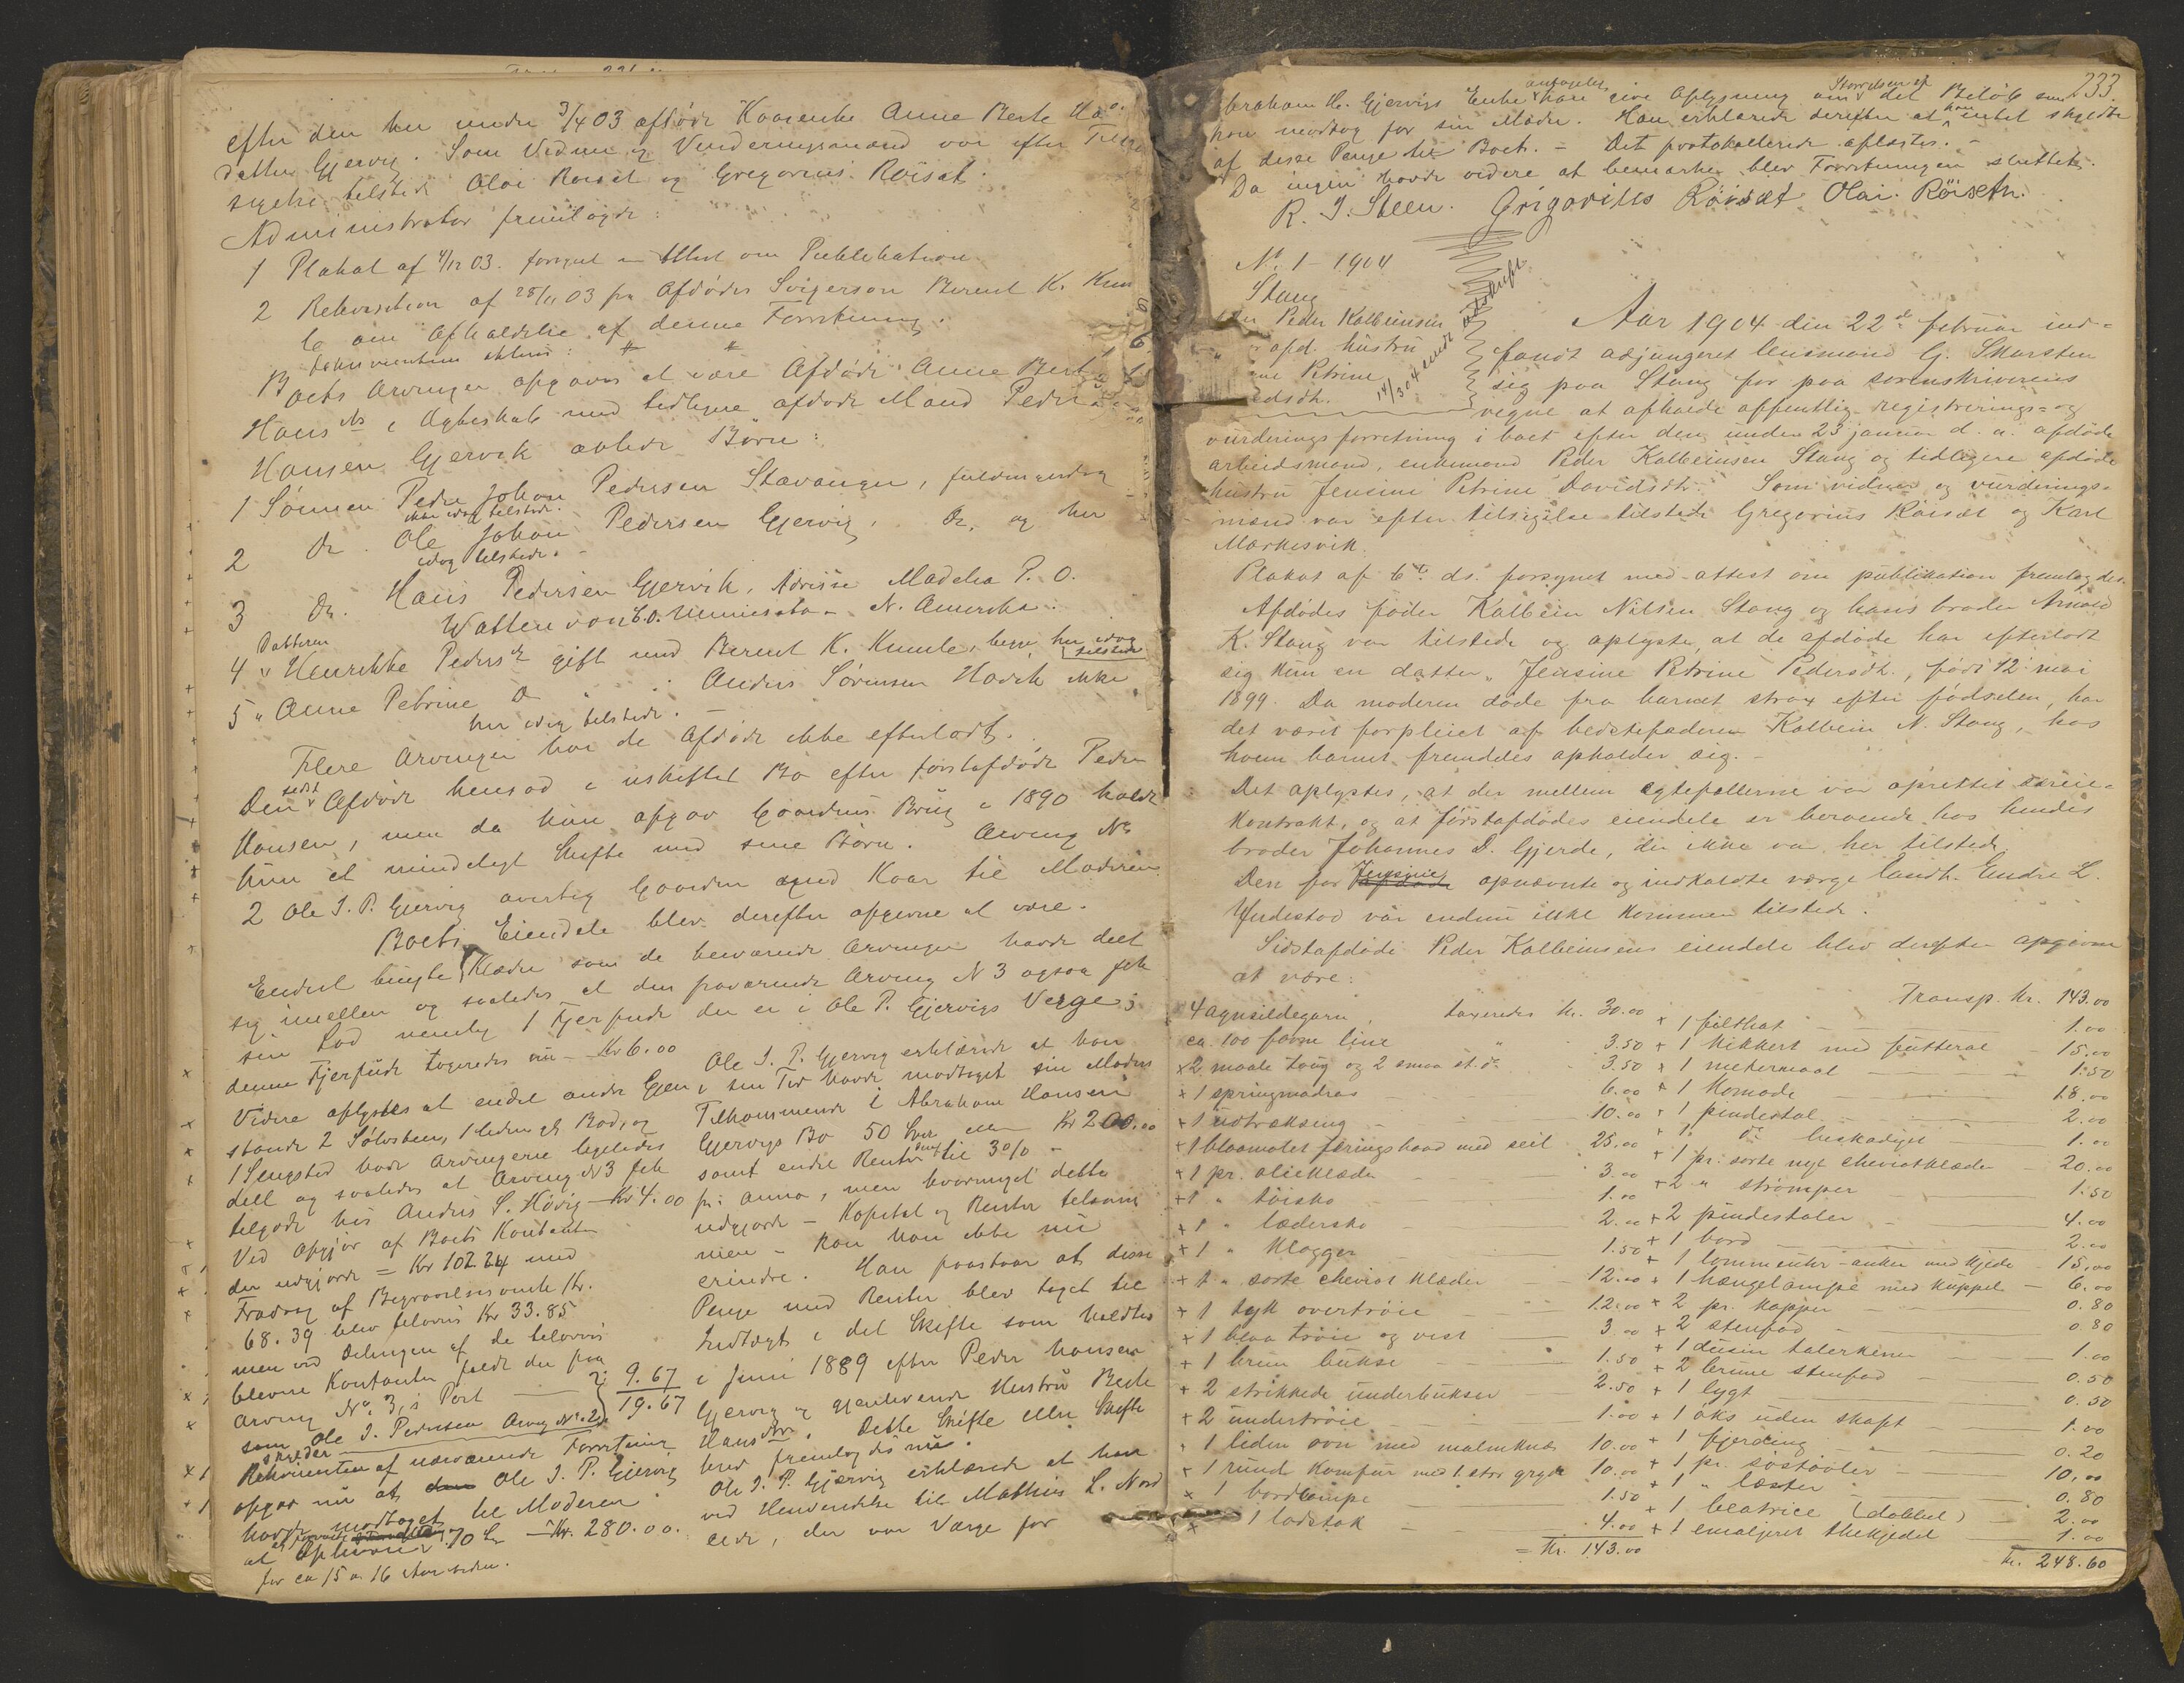 efter den her under 3/4 03 afdøde Kaarenke Anne Berte Ha
datter Gjervig. Som Vidner og Vurderingsmænd var efter
sigelse tilstede Olai Röiset og Gregorius Röiset.
Administrator fremlagde:
1 Plakat af 4/12 03. forsynet m Attest om Publikation
2 Rekvisition af 28/11 03 fra Afdødes Svigersøn Berent K.
om Afholdelse af denne Forretning.
Dokumenterne
Boets Arvinger opgaves at være Afdøde Anne Berte
Hansdtr i Ægteskab med tidligere afdøde Mand Peder
Hansen Gjervik avlede Börn:
1 Sönnen Peder Johan Pedersen Stavanger, fuldmyndig
ikke idag tilstede.
2 Do. Ole Johan Pedersen Gjervig, Do. og her
idag tilstede.
3 Do. Hans Pedersen Gjervik, Adresse Madelia P.O.
Watten von Co. Minnesota N. Amerika.
4 Datteren " Henrikke Pedersdt gift med Berent K. Kumle, begge her idag tilstede
5 " Anne Petrine Do " Anders Sörensen Hovik ikke
her idag tilstede.
Flere Arvinger har de Afdøde ikke efterladt.
Den sidst Afdøde hensad i uskiftet Bo efter förstafdöde Peder
Hansen, men da hun opgav Gaardens Brug i 1890 holdt
hun et mindeligt Skifte med sine Börn. Arving No
2 Ole J. P. Gjervig overtog Gaarden med Kaar til Moderen
Boets Eiendele blev derefter opgivne at være.
Endel brugte Klæder som de herværende Arvinger havde delt
sig imellem og saaledes at den fraværende Arving N 3 ogsaa fik
sin Lod nemlig 1 Fjerpude der er i Ole P. Gjervigs Verge;
denne Fjerpude taxeredes nu - Kr 6.00
Videre oplystes at endel andre Gjen
stande 2 Sölvskeer, 1 liden gl. Bod, og
1 Sengsted hade Arvingerne ligeledes
delt og saaledes at Arving N 3 fik
tilgode hos Anders S. Hövig - Kr 4.00
Ved Opgjör af Boets Kontanter
der udgjorde = Kr 102.24 med
Fradrag af Begravelsesomk. Kr.
68.39 blev tilovers Kr 33.85
men ved Delingen af de tilovers
blevne Kontanter faldt der paa
Arving No. 3's Part — 9.67
19.67
som Ole J. Pedersen Arving No. 2
skylder
Rekvirenten af nærværende Forretning
opgav nu at Ole J. P. Gjervig
havde modtaget til Moderen
at Opbevare 70 — Kr. 280.00.
for ca 15 a 16 Aar siden.
Ole J. P. Gjervig erklærede at han
i sin Tid havde modtaget sin Moders
Tilkommende i Abraham Hansen
Gjervigs Bo 50 Spd eller Kr 200.00
samt endel Renter deraf til 3%
pr. anno, men hvormeget dette
udgjorde - Kapital og Renter tilsam
men - kan han ikke nu
erindre. Han paastaar at disse
Penge med Renter blev taget til
Indtægt i det Skifte som holdtes
i Juni 1889 efter Peder Hansen
Gjervig og gjenlevende Hustru Berte
Hansdtr. Dette Skifte eller Skifte
brev fremlagdes nu.
Ole J. P. Gjervig erklærede at han
ved Henvendelse til Mathias L. Nord
eide, der var Værge for
233.
Abraham H. Gjervigs Enke antagelig kan give Oplysning om Störrelsen af det Belöb som
han modtog for sin Moder. Han erklærede derefter at han intet skyldte
af disse Penge til Boet. - Det protokollerede oplæstes. -
Da ingen havde videre at bemærke blev Forretningen sluttet.
R. J. Steen. Grigorius Röisæt Olai. Röiseth.
No. 1 - 1904
Stang
Peder Kolbeinsen
" afd. hustru
Petrine
Davidsdtr.
14/3 04 sendt udskrift
Aar 1904 den 22de februar ind-
fandt adjungeret lensmand G. Skarsten
sig paa Stang for paa sorenskriverens
vegne at afholde offentlig registrerings- og
vurderings forretning i boet efter den under 23 januar d. a. afdöde
arbeidsmand, enkemand Peder Kolbeinsen Stang og tidligere afdöde
hustru Jensine Petrine Davidsdtr. Som vidner og vurderings-
mænd var efter tilsigelse tilstede Gregorius Röisæt og Karl
Markesvik.
Plakat af 6te ds. forsynet med attest om publikation fremlagdes.
Afdödes fader Kolbein Nilsen Stang og hans broder Arnold
K. Stang var tilstede og oplyste, at de afdöde har efterladt
sig kun en datter, Jensine Petrine Pedersdtr., födt 12 mai
1899. Da moderen döde fra barnet strax efter födselen, har
det været forpleiet af bedstefaderen Kolbein N. Stang, hos
hvem barnet fremdeles opholder sig. -
Det oplystes, at der mellem egtefællerne var oprettet særeie-
kontrakt, og at förstafdödes eiendele er beroende hos hendes
broder Johannes D. Gjerde, der ikke var her tilstede.
Den for Jensine opnævnte og indkaldte værge landh. Endre L.
Yndestad var endnu ikke kommen tilstede.
Sidstafdöde Peder Kolbeinsens eiendele blev derefter opgivne
at være:
4 agnsildegarn, taxeredes kr. 30.00
ca. 100 favne line " 3.50
x 2 maale toug og 2 smaa st. do 3.50
x 1 springmadras 6.00
x 1 udtrækseng 10.00
x 1 blaamalet færingsbaad med seil 25.00
x 1 pr. olieklæder 3.00
x 1 " töisko 1.00
x 1 " lædersko 2.00
x 1 " klogger 1.50
x 1 " sorte cheviot klæder 12.00
x 1 tyk overtröie 12.00
x 1 blaa tröie og vest 3.00
x 1 brun bukse 1.50
x 2 strikkede underbukser 2.50
x 2 undertröie 1.00
" 1 liden ovn med malmknæ 10.00
x 1 rund komfur med 1 stor gryde 10.00
x 1 bordlampe 1.50
x 1 ladstok 4.00
= Kr. 143.00
Transp. kr. 143.00
x 1 filthat 1.00
x 1 kikkert med futteral 15.00
x 1 metermaal 1.50
x 1 komode 18.00
x 1 pindestol 2.00
x 1 do beskadiget 1.00
x 1 pr. sorte nye cheviotklæder 20.00
x 2 " strömper 1.50
x 2 pindestoler 4.00
x 1 bord 2.00
x 1 lommeuhr - anker med kjede 15.00
x 1 hængelampe med kuppel 6.00
x 2 pr. kopper 0.80
x 2 stenfad 0.80
x 1 dusin talerkener 1.00
x 2 brune stenfad 0.50
x 1 lygt 0.50
x 1 öks uden skaft 1.00
x 1 fjerding 0.20
x 1 pr. söstövler 10.00
x 1 " læster 0.80
x 1 beatrice (dobbel) 2.00
x 1 emaljeret thekjedel 1.00
kr. 248.60